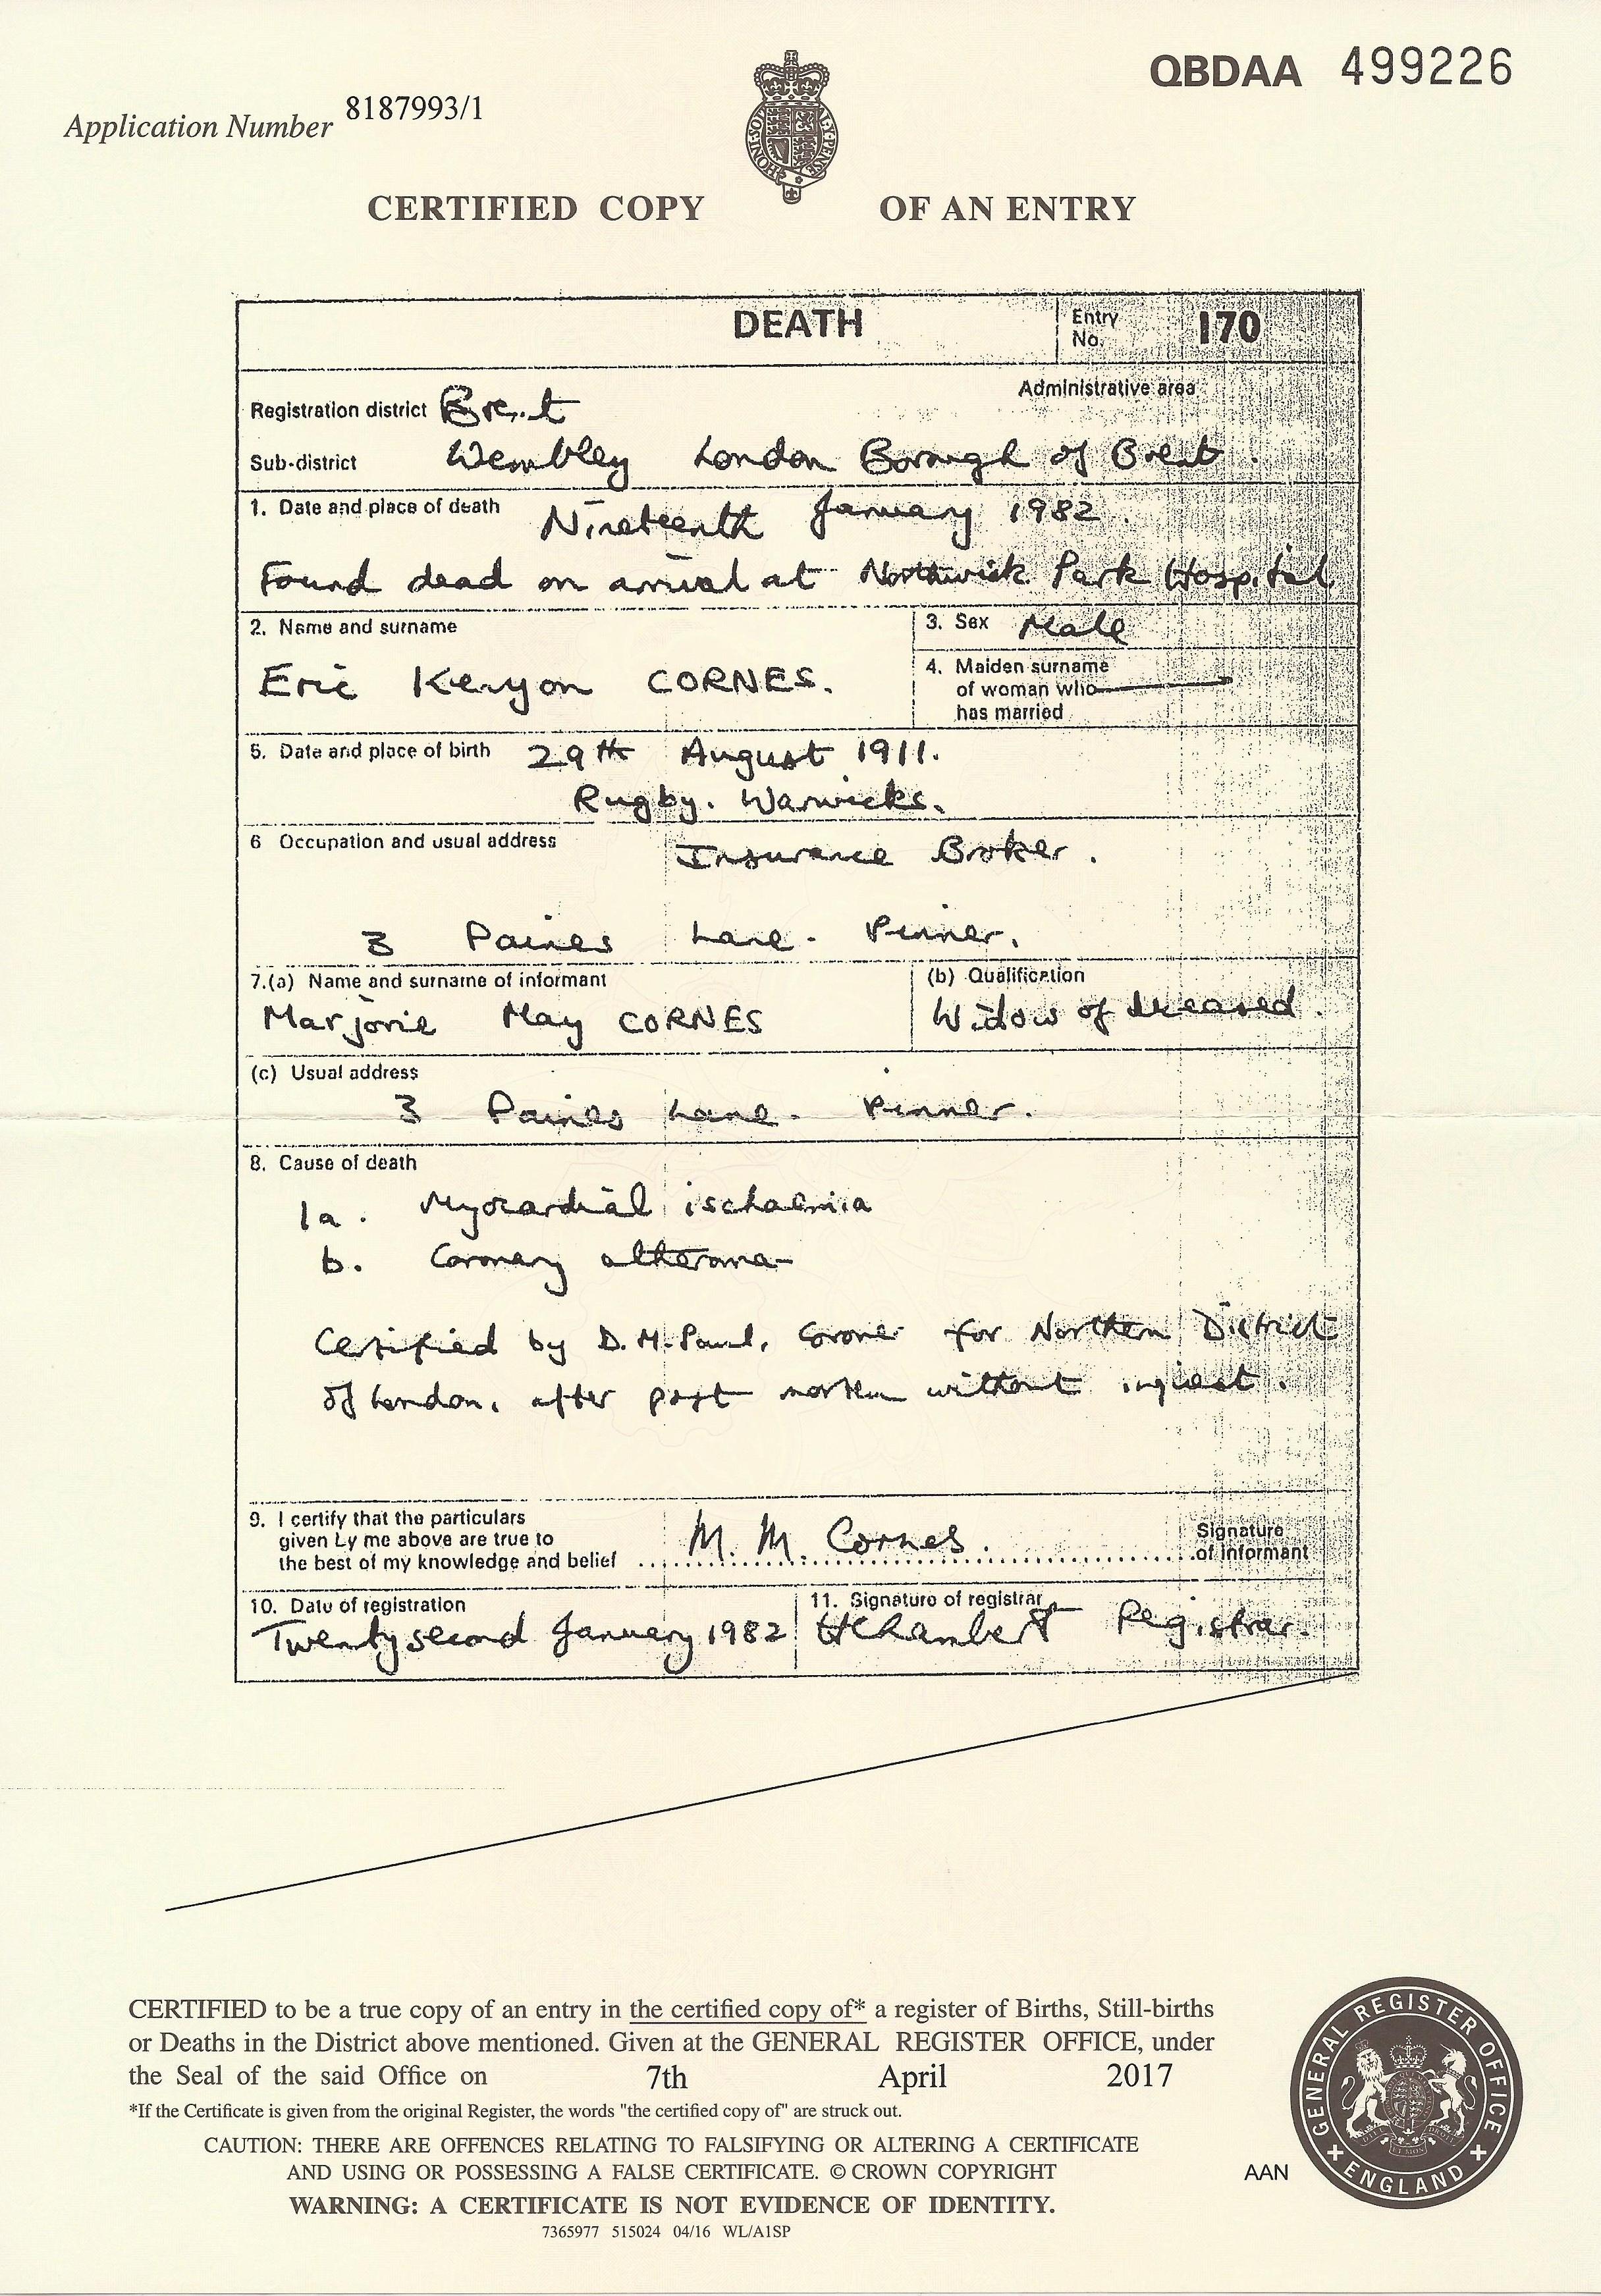 QBDAA 499226
Application Number 8187993/1
CERTIFIED COPY OF AN ENTRY
HONI SOIT QUI MAL Y PENSE
DEATH Entry No. 170
Administrative area
Registration district Brent
Sub-district Wembley London Borough of Brent.
1. Date and place of death Nineteenth January 1982.
Found dead on arrival at Northwick Park Hospital
2. Name and surname
Eric Kenyon CORNES.
3. Sex Male
4. Maiden surname
of woman who
has married
5. Date and place of birth 29th August 1911.
Rugby. Warwicks.
6 Occupation and usual address Insurance Broker.
3 Paines Lane. Pinner.
7.(a) Name and surname of informant
Marjorie May CORNES
(b) Qualification
Widow of deceased.
(c) Usual address
3 Paines Lane. Pinner.
8. Cause of death
1a. Myocardial ischaemia
b. Coronary atheroma
Certified by D.M.Paul, Coroner for Northern District
of London, after post mortem without inquest.
9. I certify that the particulars
given by me above are true to
the best of my knowledge and belief M. M. Cornes. Signature
of informant
10. Date of registration
Twenty second January 1982
11. Signature of registrar
Registrar.
CERTIFIED to be a true copy of an entry in the certified copy of* a register of Births, Still-births
or Deaths in the District above mentioned. Given at the GENERAL REGISTER OFFICE, under
the Seal of the said Office on 7th April 2017
*If the Certificate is given from the original Register, the words "the certified copy of" are struck out.
CAUTION: THERE ARE OFFENCES RELATING TO FALSIFYING OR ALTERING A CERTIFICATE
AND USING OR POSSESSING A FALSE CERTIFICATE. © CROWN COPYRIGHT
WARNING: A CERTIFICATE IS NOT EVIDENCE OF IDENTITY.
7365977 515024 04/16 WL/A1SP
AAN
GENERAL REGISTER OFFICE
ENGLAND